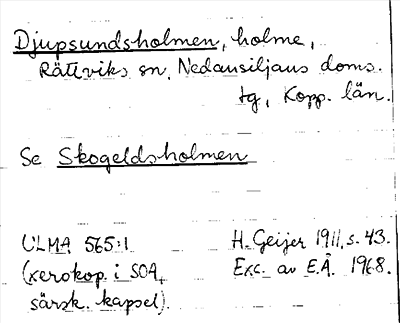 Djupsundsholmen, holme,
Rättviks sn, Nedansiljans doms.
tg, Kopp. län.
Se Skogeldsholmen
ULMA 565:1 H. Geijer 1911, s. 43.
(xerokop. i SOA, Exc. av E.Å. 1968.
särsk. kapsel).